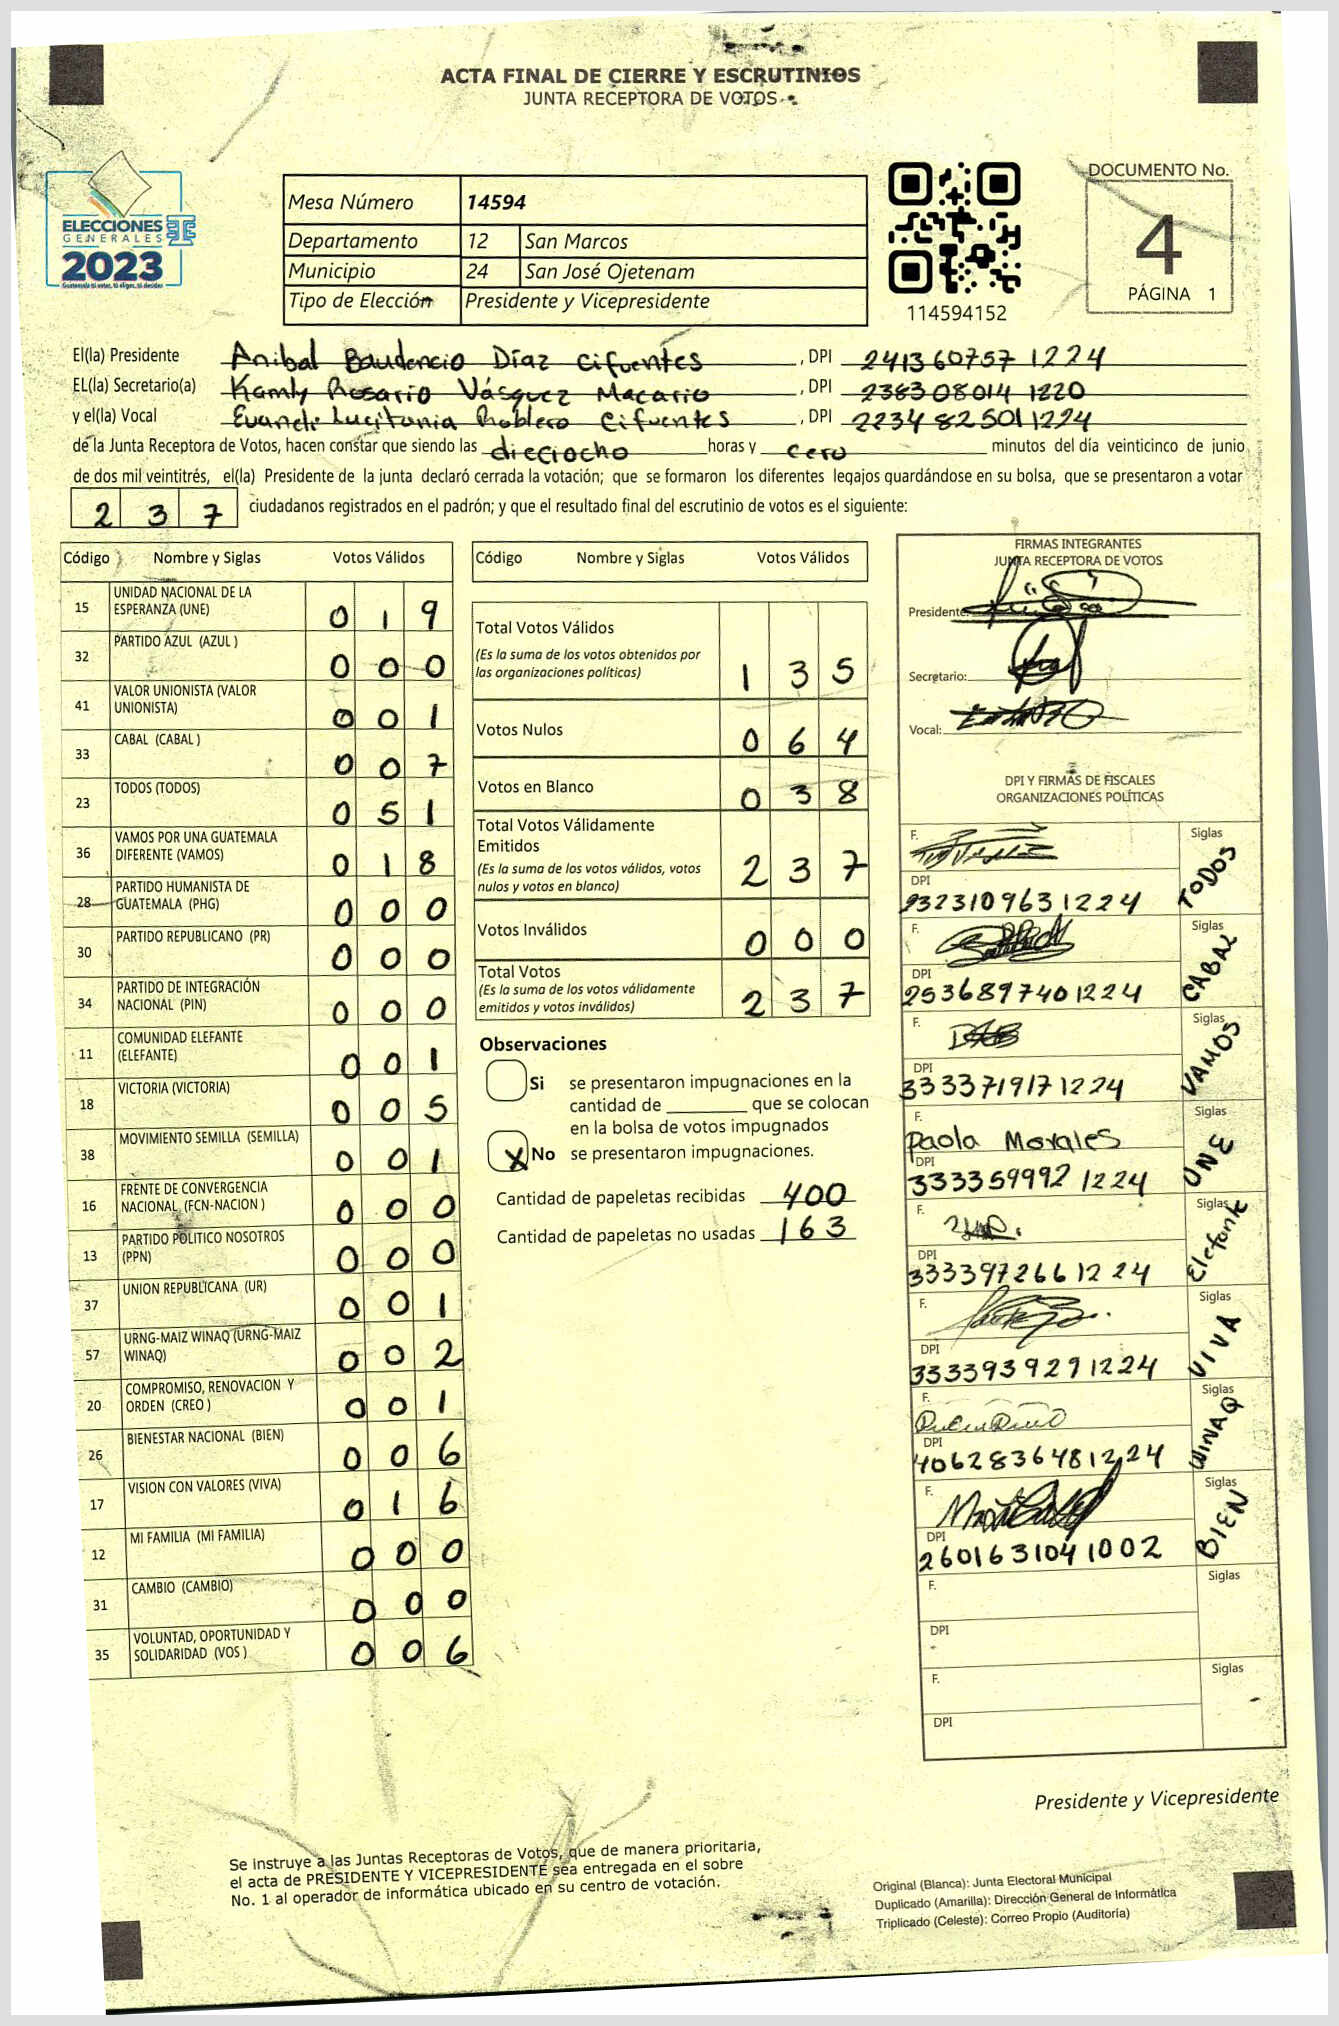 ACTA FINAL DE CIERRE Y ESCRUTINIOS
JUNTA RECEPTORA DE VOTOS
ELECCIONES
GENERALES
2023
Guatemala tú votas, tú eliges, tú decides
Mesa Número 14594
Departamento 12 San Marcos
Municipio 24 San José Ojetenam
Tipo de Elección Presidente y Vicepresidente
114594152
DOCUMENTO No.
4
PÁGINA 1
El(la) Presidente Anibal Baudencio Díaz Cifuentes, DPI 241360757 1224
EL(la) Secretario(a) Kamly Rosario Vásquez Macario, DPI 238308014 1220
y el(la) Vocal Lucitania Roblero Cifuentes, DPI 2234 82501 1224
de la Junta Receptora de Votos, hacen constar que siendo las dieciocho horas y cero minutos del día veinticinco de junio
de dos mil veintitrés, el(la) Presidente de la junta declaró cerrada la votación; que se formaron los diferentes legajos guardándose en su bolsa, que se presentaron a votar
237 ciudadanos registrados en el padrón; y que el resultado final del escrutinio de votos es el siguiente:
Código Nombre y Siglas Votos Válidos
15 UNIDAD NACIONAL DE LA ESPERANZA (UNE) 019
32 PARTIDO AZUL (AZUL ) 000
41 VALOR UNIONISTA (VALOR UNIONISTA) 001
33 CABAL (CABAL ) 007
23 TODOS (TODOS) 051
36 VAMOS POR UNA GUATEMALA DIFERENTE (VAMOS) 018
28 PARTIDO HUMANISTA DE GUATEMALA (PHG) 000
30 PARTIDO REPUBLICANO (PR) 000
34 PARTIDO DE INTEGRACIÓN NACIONAL (PIN) 000
11 COMUNIDAD ELEFANTE (ELEFANTE) 001
18 VICTORIA (VICTORIA) 005
38 MOVIMIENTO SEMILLA (SEMILLA) 001
16 FRENTE DE CONVERGENCIA NACIONAL (FCN-NACION ) 000
13 PARTIDO POLITICO NOSOTROS (PPN) 000
37 UNION REPUBLICANA (UR) 001
57 URNG-MAIZ WINAQ (URNG-MAIZ WINAQ) 002
20 COMPROMISO, RENOVACION Y ORDEN (CREO ) 001
26 BIENESTAR NACIONAL (BIEN) 006
17 VISION CON VALORES (VIVA) 016
12 MI FAMILIA (MI FAMILIA) 000
31 CAMBIO (CAMBIO) 000
35 VOLUNTAD, OPORTUNIDAD Y SOLIDARIDAD (VOS ) 006
Código Nombre y Siglas Votos Válidos
Total Votos Válidos 135
(Es la suma de los votos obtenidos por
las organizaciones políticas)
Votos Nulos 064
Votos en Blanco 038
Total Votos Válidamente
Emitidos 237
(Es la suma de los votos válidos, votos
nulos y votos en blanco)
Votos Inválidos 000
Total Votos 237
(Es la suma de los votos válidamente
emitidos y votos inválidos)
Observaciones
Si se presentaron impugnaciones en la
cantidad de ________ que se colocan
en la bolsa de votos impugnados
X No se presentaron impugnaciones.
Cantidad de papeletas recibidas 400
Cantidad de papeletas no usadas 163
FIRMAS INTEGRANTES
JUNTA RECEPTORA DE VOTOS
Presidente:
Secretario:
Vocal:
DPI Y FIRMAS DE FISCALES
ORGANIZACIONES POLÍTICAS
F. Siglas TODOS
DPI
2323109631224
F. Siglas CABAL
DPI
2536897401224
F. Siglas VAMOS
DPI
3333719171224
F. Paola Morales Siglas UNE
DPI
333359992 1224
F. Siglas Elefante
DPI
3333972661224
F. Siglas VIVA
DPI
3333939291224
F. Siglas WINAQ
DPI
4062836481224
F. Siglas BIEN
DPI
2601631041002
F. Siglas
DPI
F. Siglas
DPI
Presidente y Vicepresidente
Se instruye a las Juntas Receptoras de Votos, que de manera prioritaria,
el acta de PRESIDENTE Y VICEPRESIDENTE sea entregada en el sobre
No. 1 al operador de informática ubicado en su centro de votación.
Original (Blanca): Junta Electoral Municipal
Duplicado (Amarilla): Dirección General de Informática
Triplicado (Celeste): Correo Propio (Auditoría)